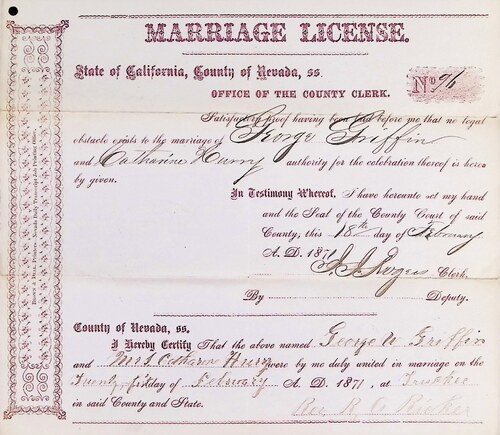 MARRIAGE LICENSE.
State of California, County of Nevada, ss.
OFFICE OF THE COUNTY CLERK.
No 96
Satisfactory proof having been had before me that no legal
obstacle exists to the marriage of George Griffin
and Catharine Hurry authority for the celebration thereof is here-
by given.
In Testimony Whereof, I have hereunto set my hand
and the Seal of the County Court of said
County, this 18th day of February
A. D. 1871
J. J. Rogers Clerk.
By Deputy.
County of Nevada, ss.
I Hereby Certify That the above named George W Griffin
and Mrs Catharn Hury were by me duly united in marriage on the
Twenty day of February A. D. 1871, at Truckee
in said County and State.
Rev. R. A. Ricker